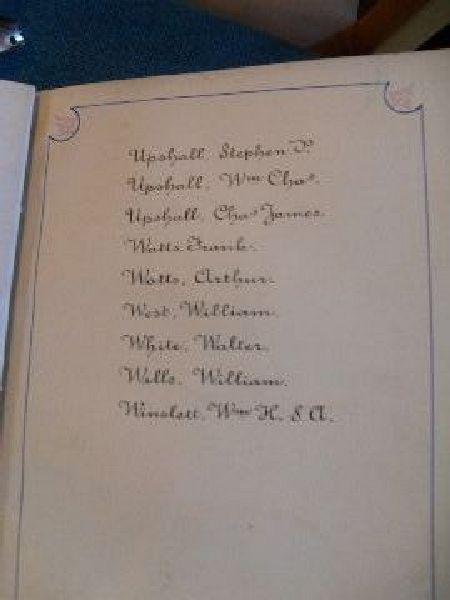 Upshall, Stephen P.
Upshall, Wm Chas.
Upshall, Chas James.
Watts Frank.
Watts, Arthur.
West, William.
White, Walter.
Wells, William.
Winslett, Wm H. S. A.